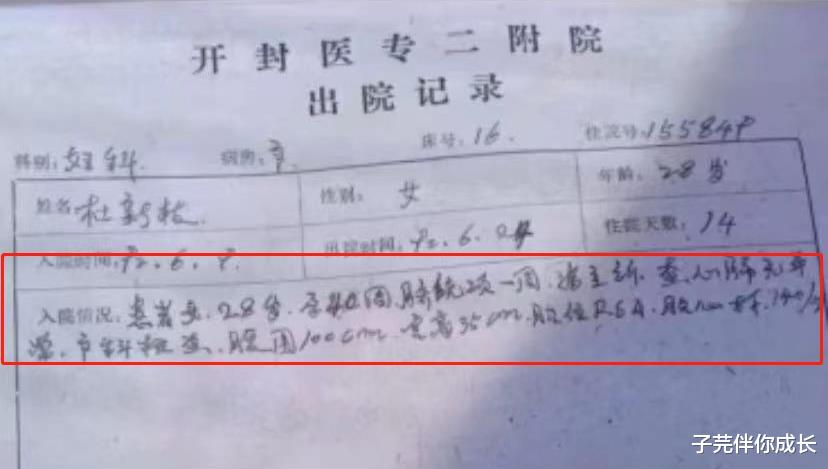 开封医专二附院
出院记录
科别:妇科 病房: 床号:16. 住院号:155849
姓名:杜新枝 性别: 女 年龄:28岁
入院时间:92.6. 出院时间:92.6. 住院天数:14
入院情况:患者女.28岁.孕40周,脐绕颈一周,为主诉.查心肺无异
产科检查.腹围100cm.宫高35cm.胎位RSA.胎心 140/分
子芫伴你成长